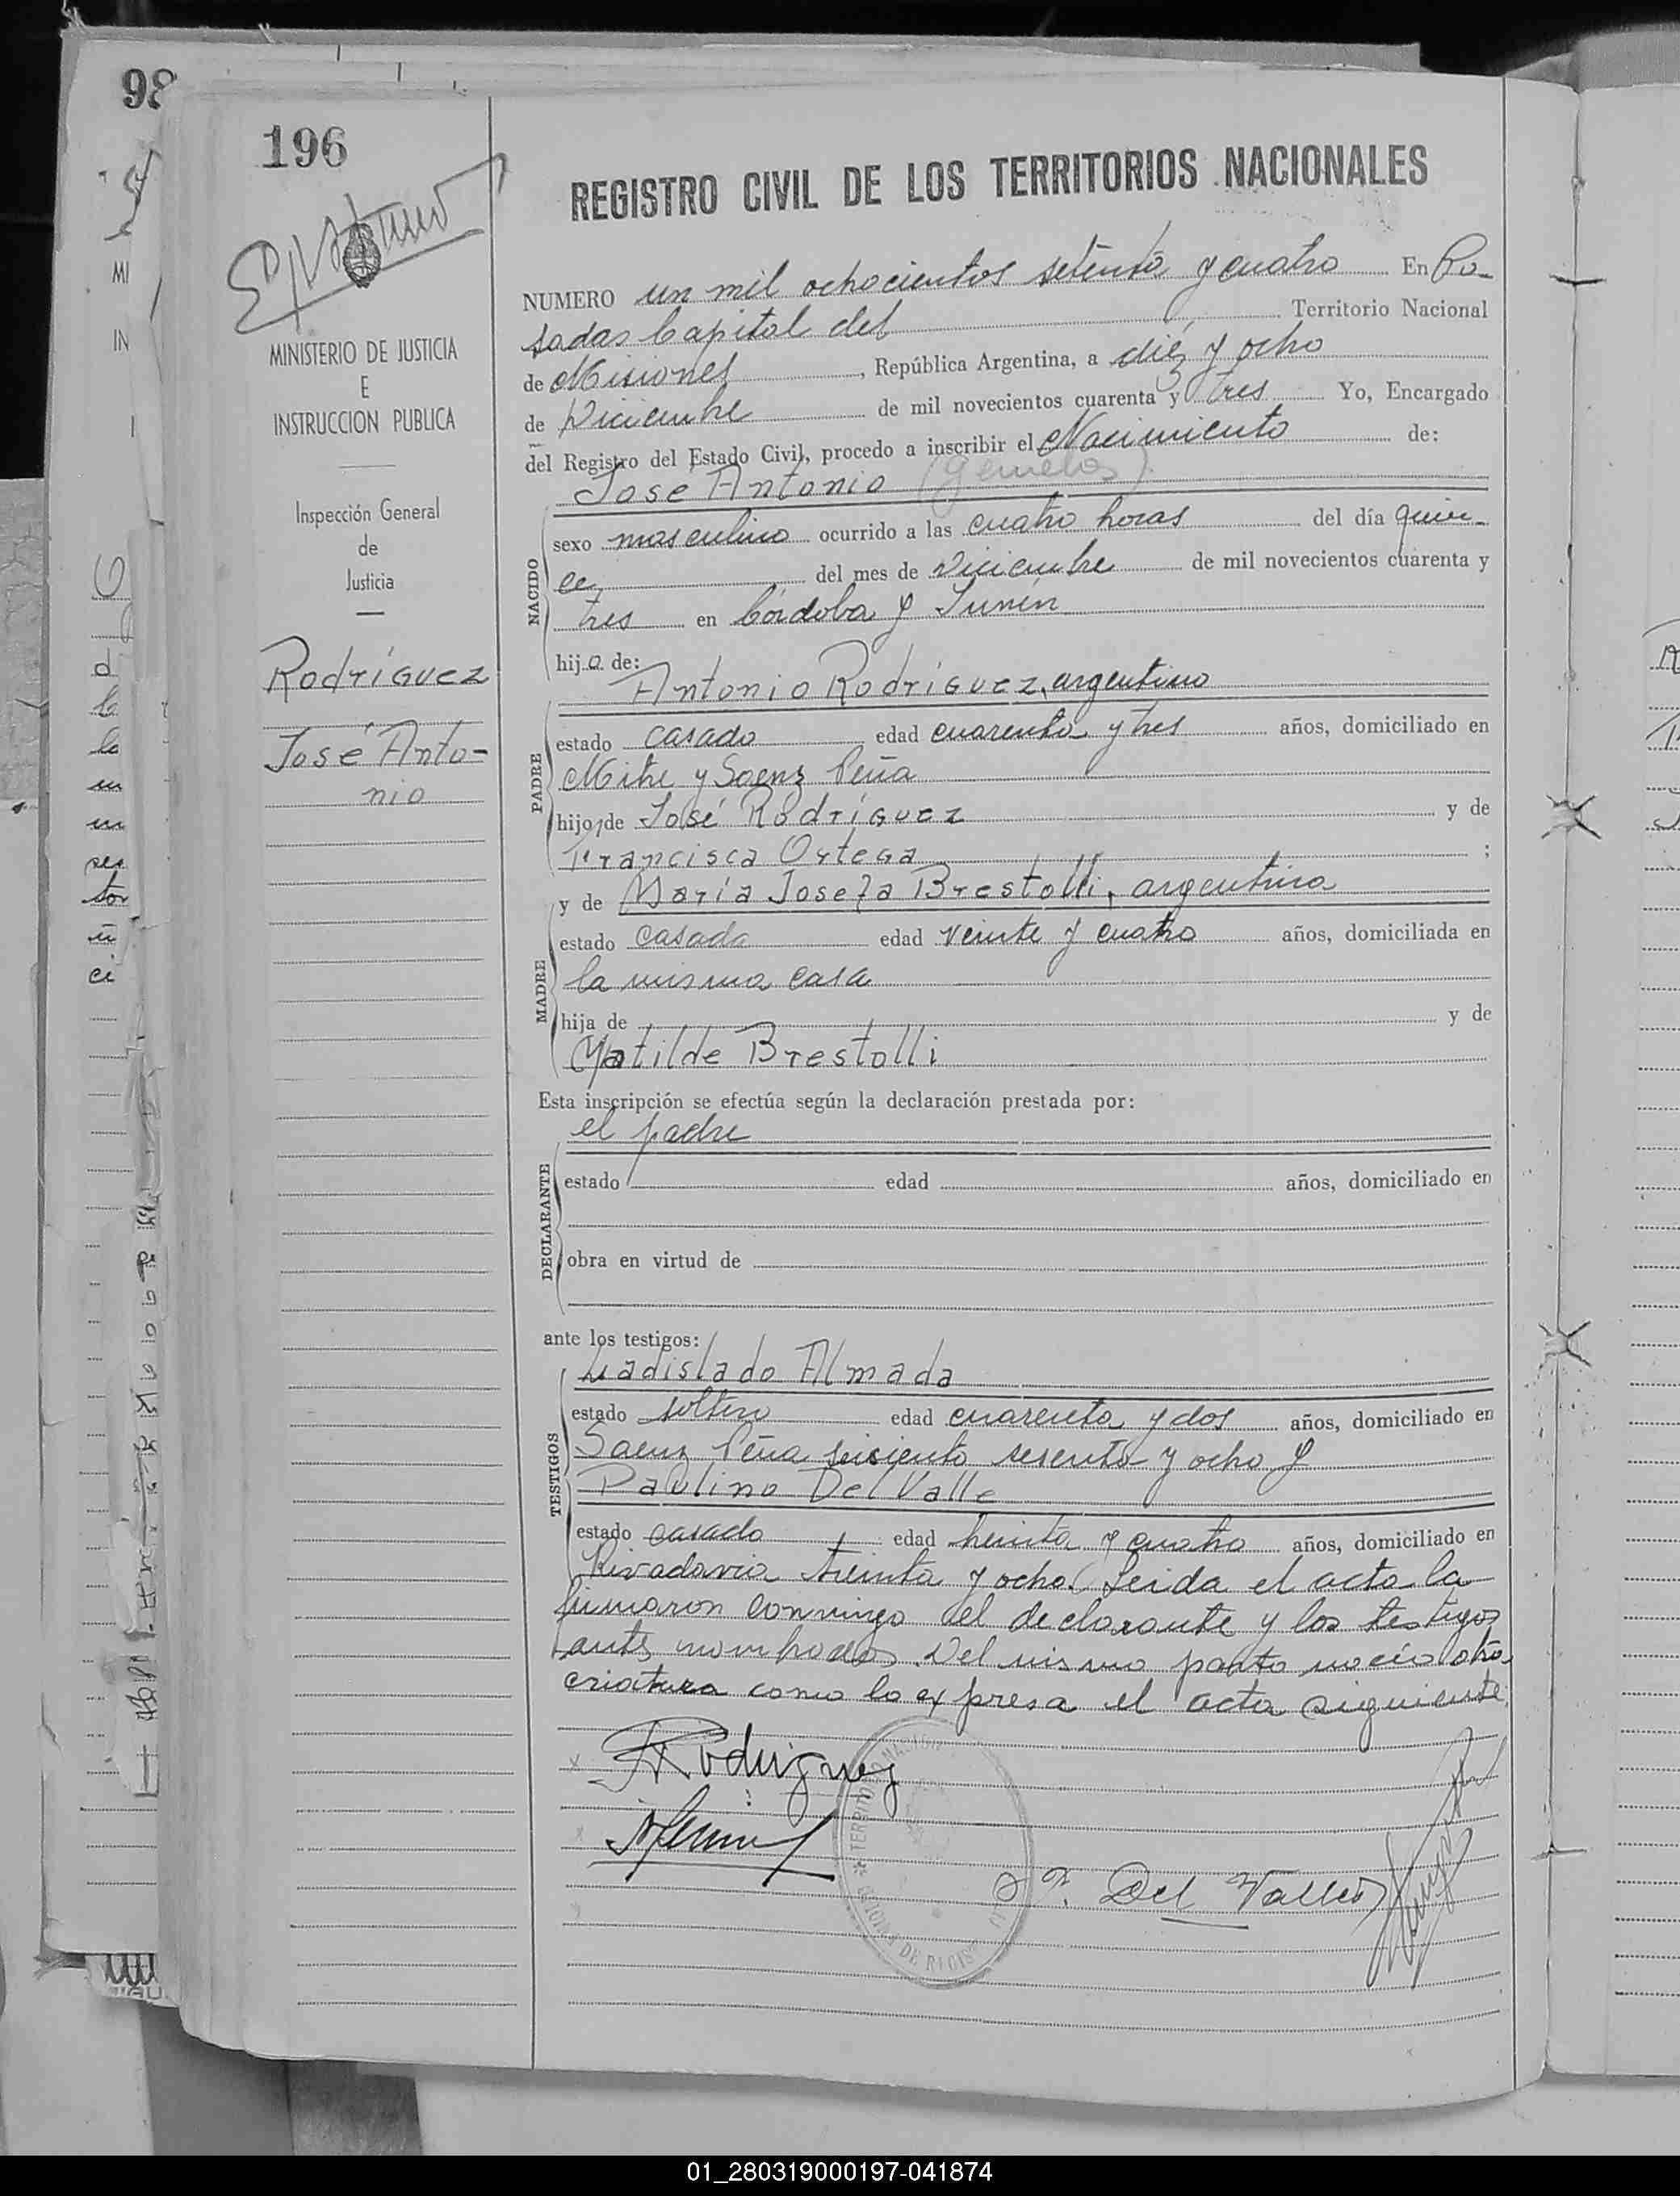 98
196
REGISTRO CIVIL DE LOS TERRITORIOS NACIONALES
MINISTERIO DE JUSTICIA
E
INSTRUCCION PUBLICA
Inspección General
de
Justicia
Rodríguez
José Anto-
nio
NUMERO un mil ochocientos setenta y cuatro En Po-
sadas Capital del Territorio Nacional
de Misiones, República Argentina, a diez y ocho
de Diciembre de mil novecientos cuarenta y tres Yo, Encargado
del Registro del Estado Civil, procedo a inscribir el Nacimiento de:
José Antonio (gemelos)
NACIDO
sexo masculino ocurrido a las cuatro horas del día quin-
ce del mes de Diciembre de mil novecientos cuarenta y
tres en Córdoba y Junín
hijo de:
Antonio Rodríguez, argentino
PADRE
estado casado edad cuarenta y tres años, domiciliado en
Mitre y Saenz Peña
hijo de José Rodríguez y de
Francisca Ortega ;
y de María Josefa Brestolli, argentina
MADRE
estado casada edad veinte y cuatro años, domiciliada en
la misma casa
hija de y de
Matilde Brestolli
Esta inscripción se efectúa según la declaración prestada por:
el padre
DECLARANTE
estado edad años, domiciliado en
obra en virtud de
ante los testigos:
Ladislado Almada
TESTIGOS
estado soltero edad cuarenta y dos años, domiciliado en
Saenz Peña seiscientos sesenta y ocho y
Paulino Del Valle
estado casado edad treinta y cuatro años, domiciliado en
Rivadavia treinta y ocho. Leida el acta la
firmaron conmigo el declarante y los testigos
antes nombrados. Del mismo parto nació otra
criatura como lo expresa el acta siguiente
Rodriguez
P. Del Valle
01_280319000197-041874